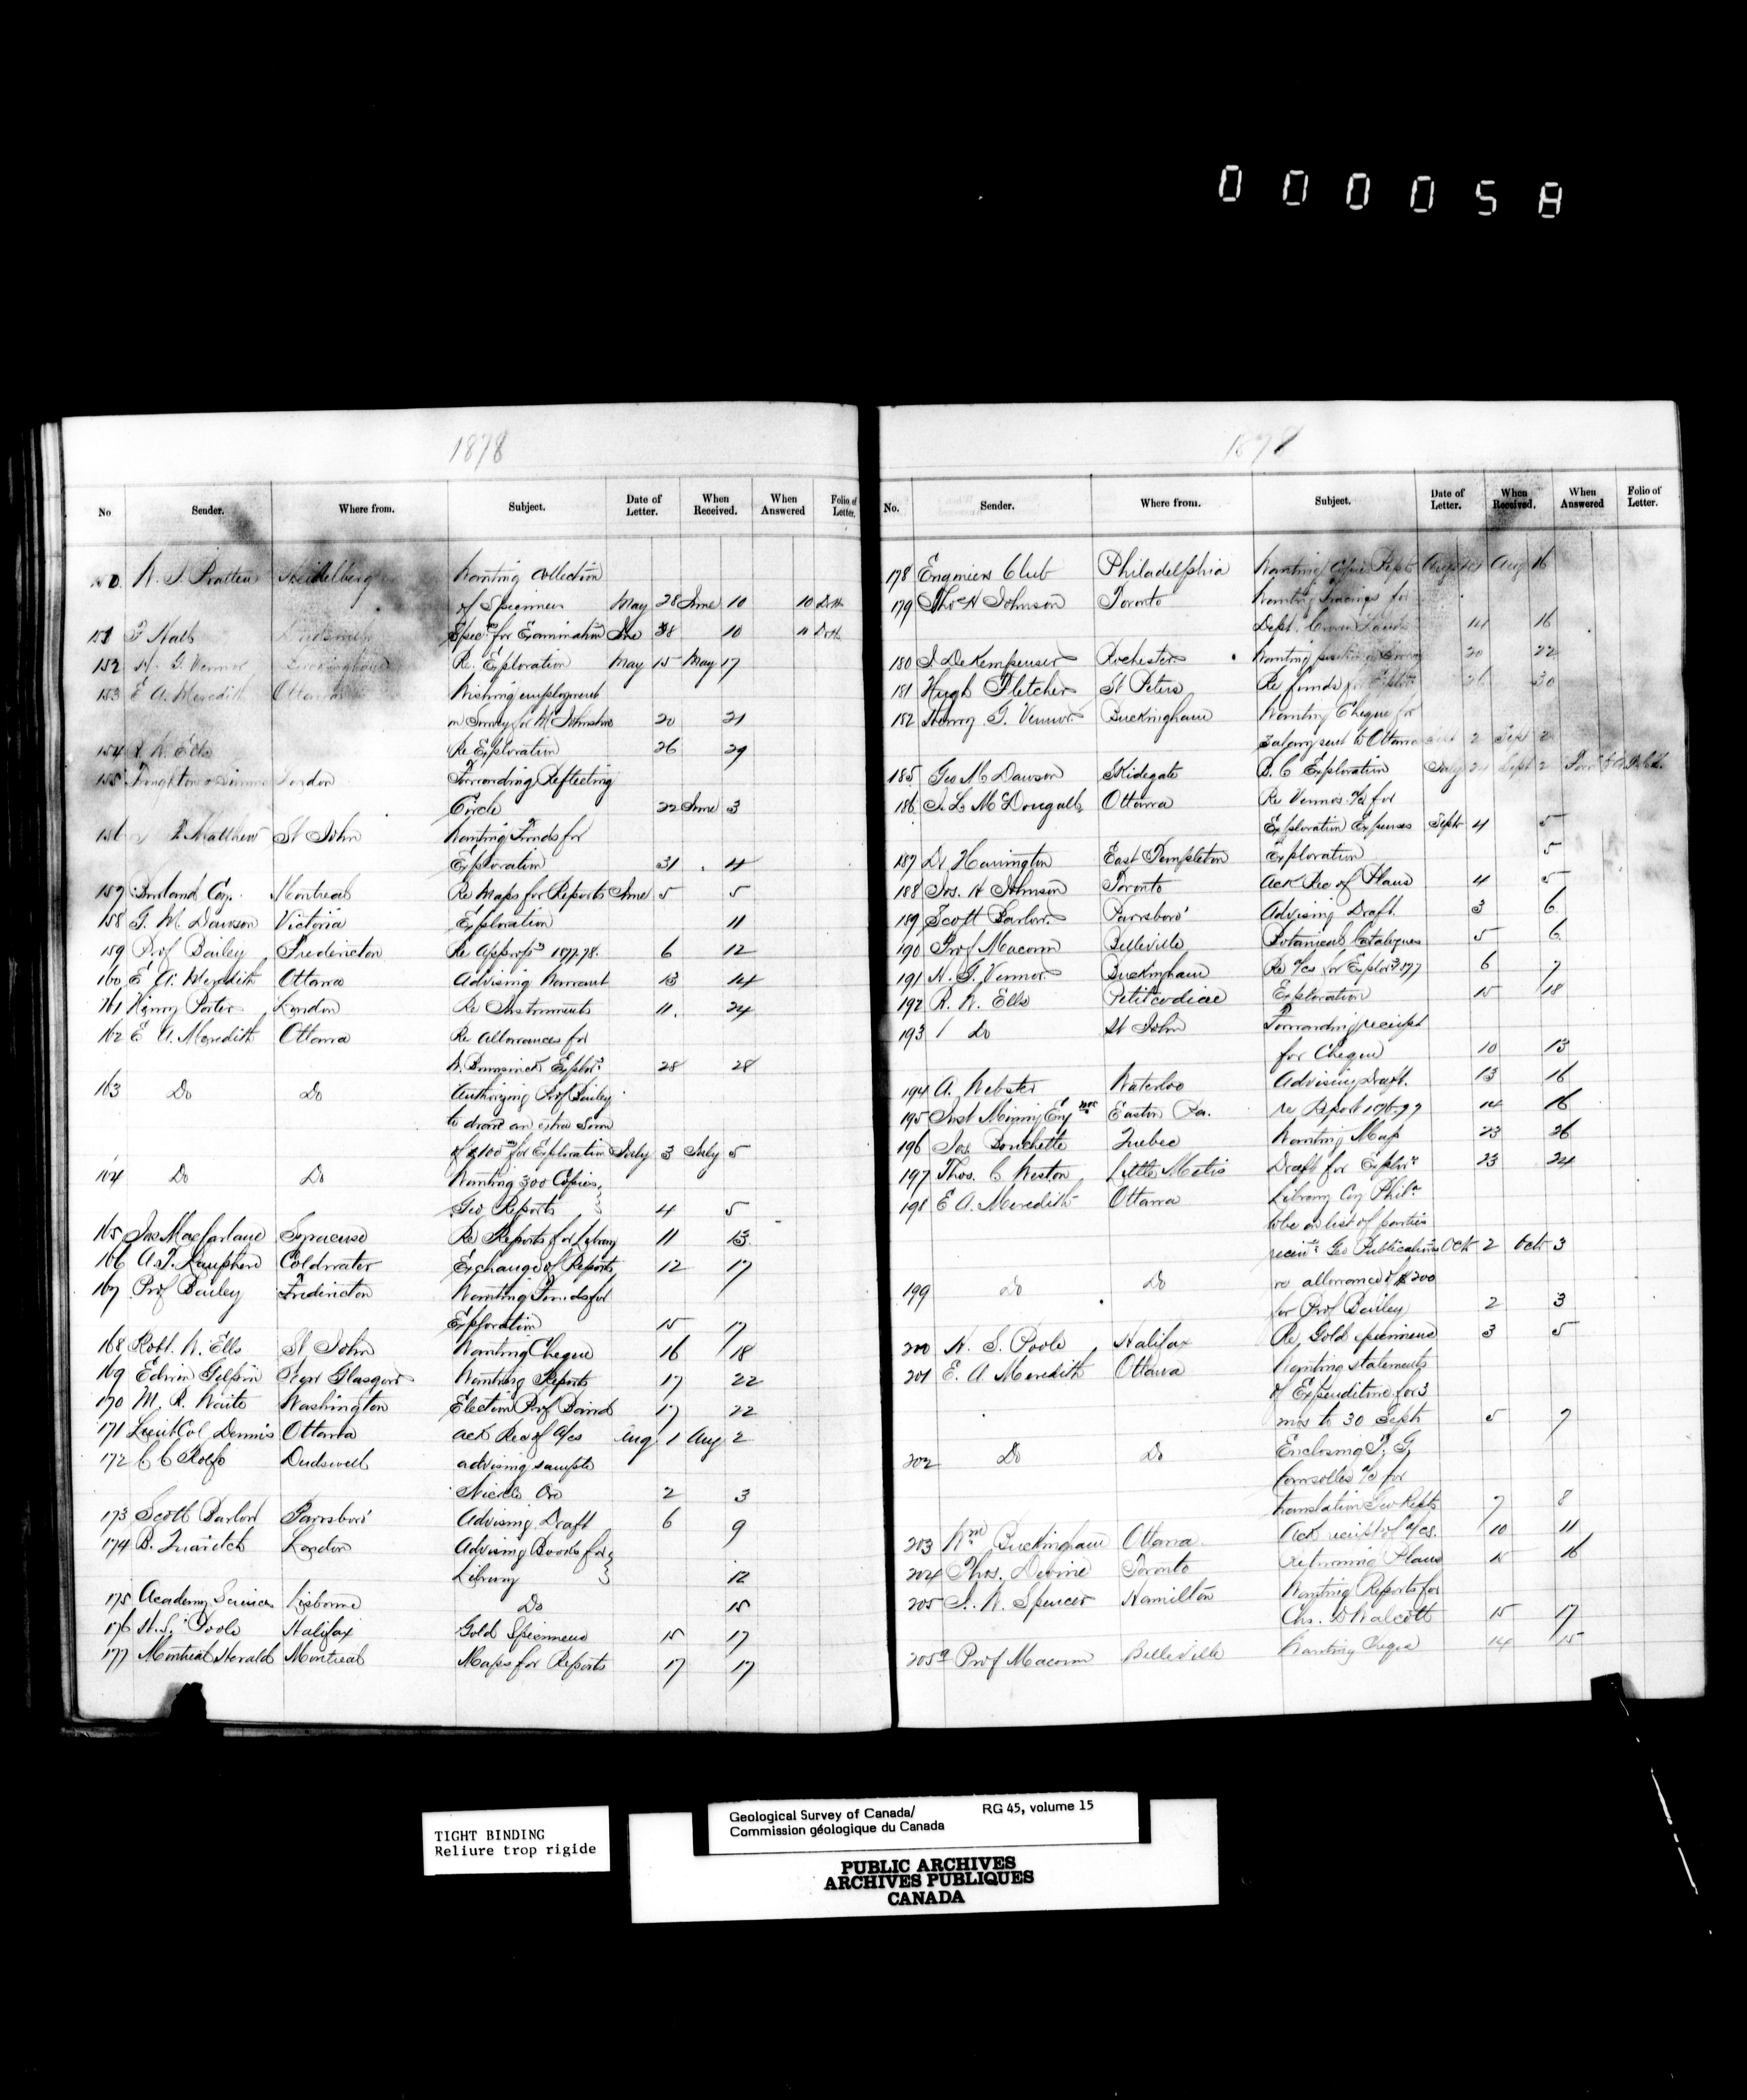 000058
1878
No Sender. Where from. Subject. Date of Letter. When Received. When Answered Folio of Letter.
Heidelberg Wanting Collection
of Specimen May 28 June 10 10 Dr H.
Spec. for Examination June 10 11 Dr H.
152 H. G. Vennor Re. Exploration May 15 May 17
153 E A. Meredith Ottawa Wishing employment
on Survey for Mr Johnston 20 21
154 R W. Ells Re Exploration 26 29
155 London Forwarding Reflecting
Circle 22 June 3
156 Matthew St John Wanting Funds for
Exploration 31 4
157 Burland Coy. Montreal Re Maps for Reports June 5 5
158 G. M. Dawson Victoria Exploration 11
159 Prof Bailey Fredericton Re Approp. 1877.78. 6 12
160 E A. Meredith Ottawa Advising Warrant 13 14
161 Henry Porter London Re Instruments 11. 24
162 E A. Meredith Ottawa Re Allowances for
N. Brunswick Explor. 28 28
163 Do Do Authorizing Prof Bailey
to draw an extra sum
of $100 for Exploration July 3 July 5
164 Do Do Wanting 300 Copies
Geo Reports 4 5
165 Jas Macfarlane Syracuse Re Reports for Library 11 13.
166 A. T. Coldwater Exchange of Reports 12 17
167 Prof Bailey Fredericton Wanting Funds for
Exploration 15 17
168 Robt. W. Ells St John Wanting Cheque 16 18
169 Edwin Gilpin New Glasgow Wanting Reports 17 22
170 M. R. Waite Washington Election Prof Baird 17 22
171 Lieut Col Dennis Ottawa Ack Rec of A/cs Aug 1 Aug 2
172 C C Rolfe Dudswell advising sample
Nickle Ore 2 3
173 Scott Barlow Parrsboro' Advising Draft 6 9
174 B. Quaritch London Advising Books for
Library 12
175 Academy Sciences Lisbonne Do 15
176 H. S. Poole Halifax Gold Specimens 15 17
177 Montreal Herald Montreal Maps for Reports 17 17
1878
No. Sender. Where from. Subject. Date of Letter. When Received. When Answered Folio of Letter.
178 Engineers Club Philadelphia Wanting Copies Repts Aug Aug 16
179 Thos H Johnson Toronto Wanting Tracings for
Dept. Crown Lands 14 16
180 Rochester Wanting position 20 22
181 Hugh Fletcher St Peters Re funds for Explor. 26 30
182 Henry G. Vennor Buckingham Wanting Cheque for
Salary sent to Ottawa Sept 2 Sept 2
185 Geo M. Dawson Skidegate B. C Exploration July 24 Sept 2
186 J. L. McDougall Ottawa Re Vennors a/c for
Exploration Expenses Sept 4 5
187 Dr Harrington East Templeton Exploration 5
188 Jos. H Johnson Toronto Ack Rec of Plans 4 5
189 Scott Barlow Parrsboro' Advising Draft. 3 6
190 Prof Macoun Belleville Botanical Catalogues 5 6
191 H. G. Vennor Buckingham Re a/cs for Explor. 1877 6 7
192 R. W. Ells Petitcodiac Exploration 15 18
193 Do St John Forwarding receipt
for Cheque 10 13
194 A. Webster Waterloo Advising Draft. 13 16
195 Inst Mining Engrs Easton Pa. re Report 1876-77 14 16
196 Jos Bouchette Quebec Wanting Map 23 26
197 Thos. C Weston Little Metis Draft for Explor. 23 24
198 E A. Meredith Ottawa Library Coy Phila
to be on list of parties
Geo Publications Oct 2 Oct 3
199 Do Do re allowance of $200
for Prof Bailey 2 3
200 H. S. Poole Halifax Re Gold specimens 3 5
201 E. A Meredith Ottawa Wanting statements
of Expenditure for 3
mos to 30 Sept 5 7
202 Do Do Enclosing
a/c for
translation Geo Repts 7 8
203 Wm Buckingham Ottawa Ack receipt of a/cs. 10 11
204 Thos. Devine Toronto returning Plans 15 16
205 J. W. Spencer Hamilton Wanting Reports for
Chs. D Walcott 15 17
205a Prof Macoun Belleville Wanting Cheque 14 15
TIGHT BINDING
Reliure trop rigide
Geological Survey of Canada/ RG 45, volume 15
Commission géologique du Canada
PUBLIC ARCHIVES
ARCHIVES PUBLIQUES
CANADA